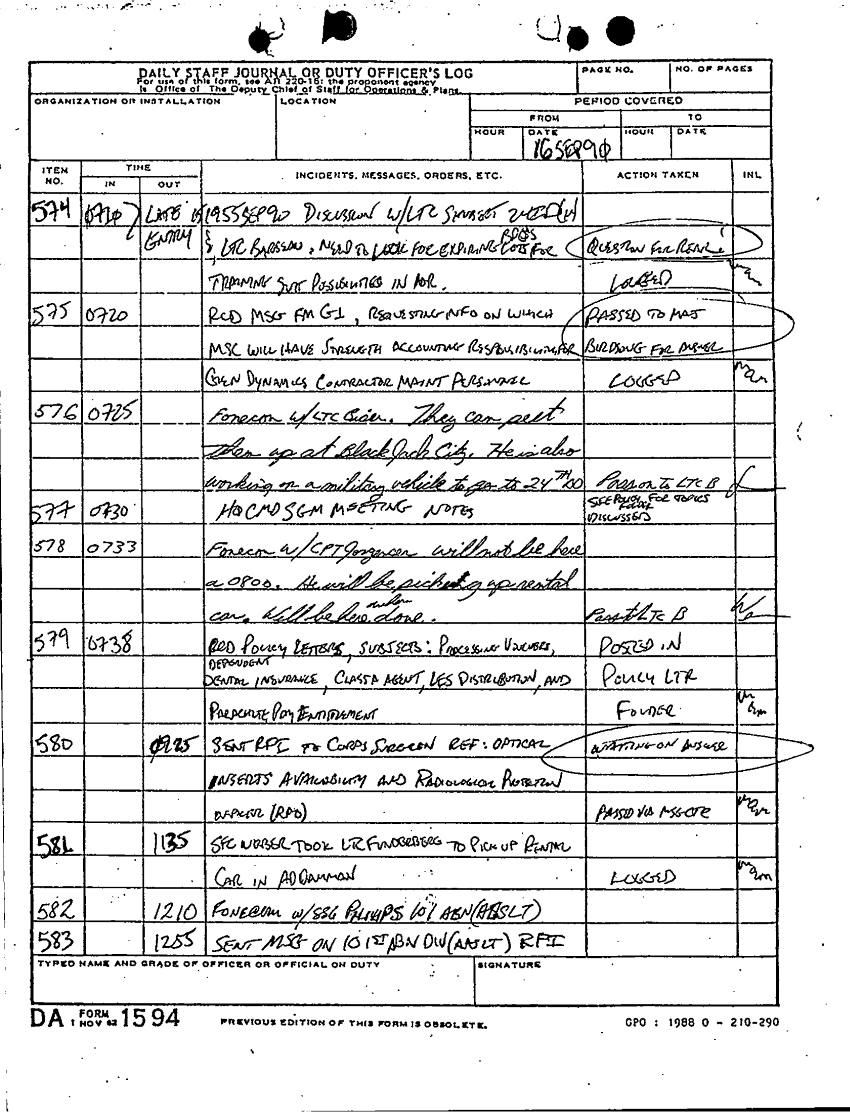 DAILY STAFF JOURNAL OR DUTY OFFICER'S LOG
For use of this form, see AR 220-15; the proponent agency
is Office of The Deputy Chief of Staff for Operations & Plans.
PAGE NO.
NO. OF PAGES
ORGANIZATION OR INSTALLATION
LOCATION
PERIOD COVERED
FROM
TO
HOUR
DATE
16 SEP 90
HOUR
DATE
ITEM NO.
TIME
IN
OUT
INCIDENTS, MESSAGES, ORDERS, ETC.
ACTION TAKEN
INL
574 0710 LATE 151955SEP90 DISCUSSION W/LTC 24ID(M)
ENTRY & LTC , NEED TO LOOK FOR EXPIRING FOR QUESTION FOR
TRAINING POSSIBILITIES IN AOR. LOGGED
575 0720 RCD MSG FM G1, REQUESTING INFO ON WHICH PASSED TO MAJ
MSC WILL HAVE STRENGTH ACCOUNTING RESPONSIBILITIES FOR BIRDSONG FOR ANSWER
GEN DYNAMICS CONTRACTOR MAINT PERSONNEL LOGGED
576 0725 Fonecon w/LTC . They can put
them up at Black Jack City. He is also
working on a military vehicle to go to 24TH Pass on to LTC B
577 0730 HQ CMD SGM MEETING NOTES SEE POLICY FOLDER FOR TOPICS DISCUSSED
578 0733 Fonecon w/CPT Jorgensen will not be here
a 0800. He will be picking up rental
car. Will be here when done. Pass to LTC B
579 0738 RCD POLICY LETTERS, SUBJECTS: PROCESSING VOUCHERS, POSTED IN
DEPENDENT
DENTAL INSURANCE, CLASS A AGENT, LES DISTRIBUTION, AND POLICY LTR
PARACHUTE PAY ENTITLEMENT FOLDER
580 0925 SENT RFI TO CORPS SURGEON REF: OPTICAL WAITING ON ANSWER
INSERTS AVAILABILITY AND RADIOLOGICAL PROTECTION
OFFICER (RPO) PASSED VIA MSG CTR
581 1135 SFC TOOK LTC FUNDERBERG TO PICK UP RENTAL
CAR IN AD DAMMAM LOGGED
582 1210 FONECON W/SSG PHILLIPS 101 ABN(AASLT)
583 1255 SENT MSG ON 101ST ABN DIV(AASLT) RFI
TYPED NAME AND GRADE OF OFFICER OR OFFICIAL ON DUTY
SIGNATURE
DA FORM 1 NOV 62 1594
PREVIOUS EDITION OF THIS FORM IS OBSOLETE.
GPO : 1988 O - 210-290